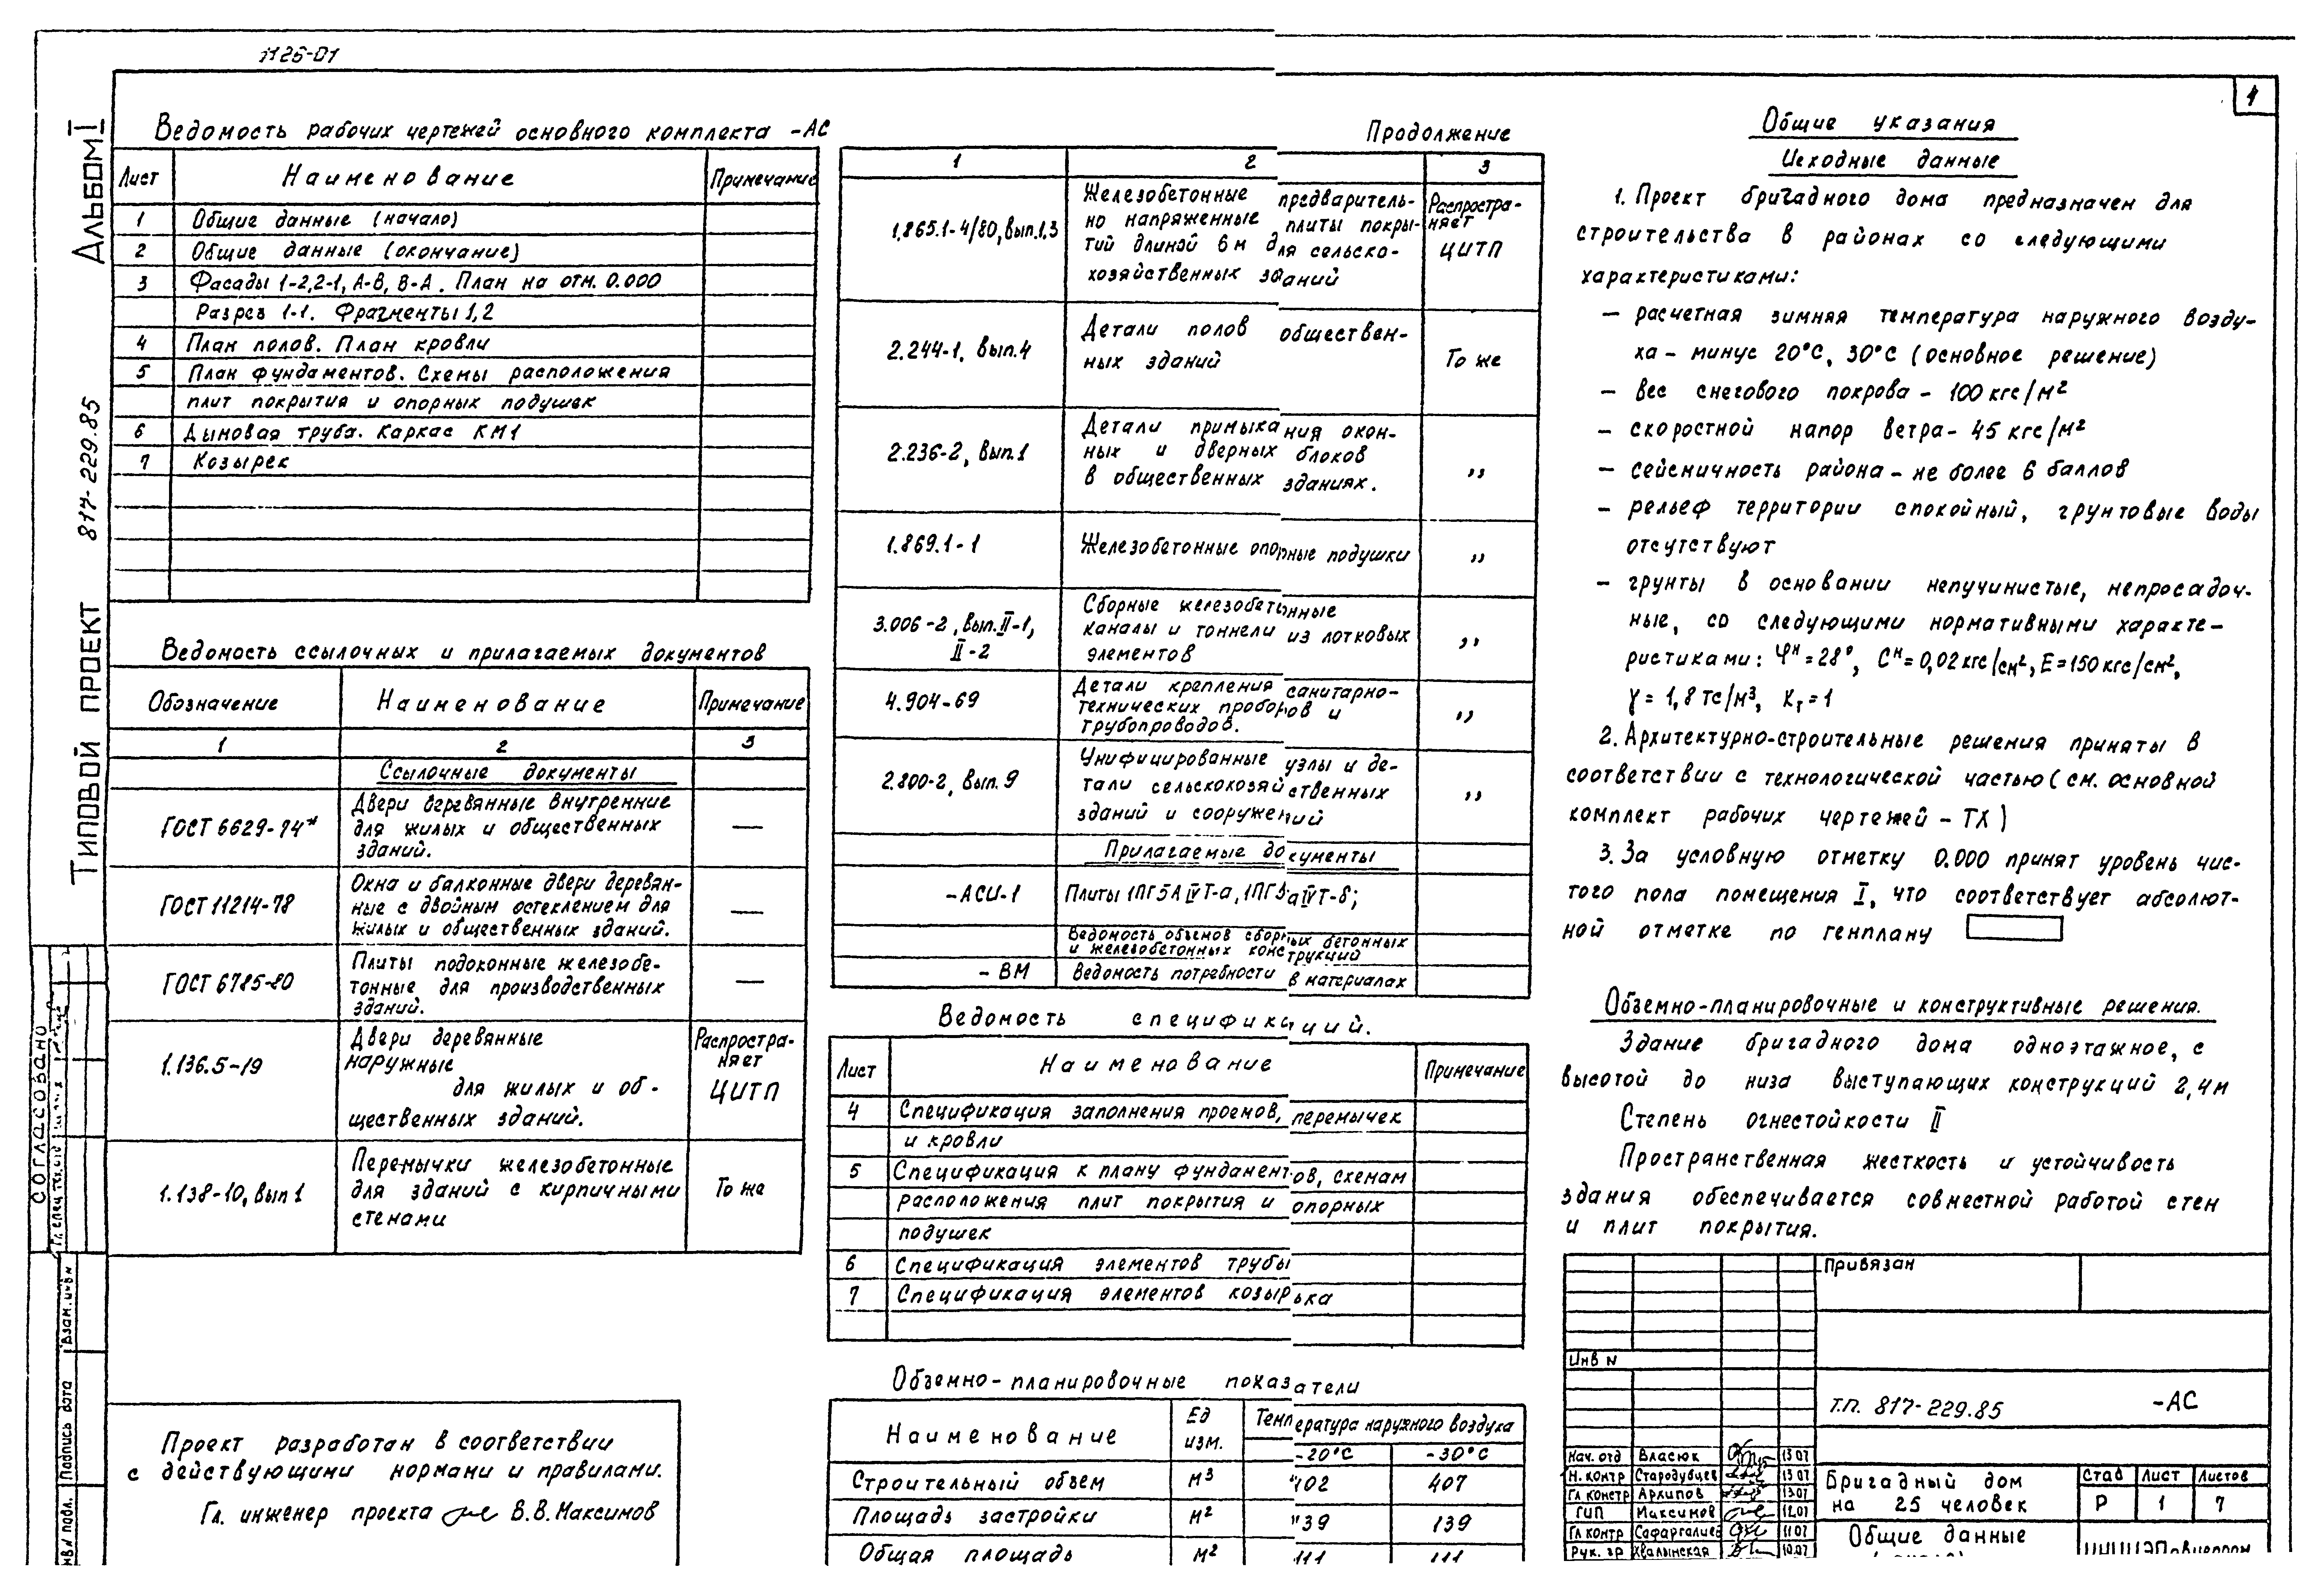 1126-01
1
Альбом I
817-229.85
Типовой проект
Ведомость рабочих чертежей основного комплекта -АС
Лист Наименование Примечание
1 Общие данные (начало)
2 Общие данные (окончание)
3 Фасады 1-2, 2-1, А-В, В-А. План на отм. 0.000
Разрез 1-1. Фрагменты 1,2
4 План полов. План кровли
5 План фундаментов. Схемы расположения
плит покрытия и опорных подушек
6 Дымовая труба. Каркас КМ1
7 Козырек
Ведомость ссылочных и прилагаемых документов
Обозначение Наименование Примечание
1 2 3
Ссылочные документы
ГОСТ 6629-74* Двери деревянные внутренние —
для жилых и общественных
зданий.
ГОСТ 11214-78 Окна и балконные двери деревян-
ные с двойным остеклением для —
жилых и общественных зданий.
ГОСТ 6785-80 Плиты подоконные железобе-
тонные для производственных —
зданий.
1.136.5-19 Двери деревянные Распростра-
наружные няет
для жилых и об- ЦИТП
щественных зданий.
1.138-10, вып 1 Перемычки железобетонные
для зданий с кирпичными То же
стенами
Проект разработан в соответствии
с действующими нормами и правилами.
Гл. инженер проекта В.В. Максимов
Продолжение
1 2 3
1.865.1-4/80, вып.1,3 Железобетонные предваритель- Распростра-
но напряженные плиты покры- няет
тий длиной 6м для сельско- ЦИТП
хозяйственных зданий
2.244-1, вып.4 Детали полов обществен-
ных зданий То же
2.236-2, вып.1 Детали примыкания окон-
ных и дверных блоков
в общественных зданиях. ,,
1.869.1-1 Железобетонные опорные подушки ,,
3.006-2, вып. II-1, Сборные железобетонные
II-2 каналы и тоннели из лотковых ,,
элементов
4.904-69 Детали крепления санитарно-
технических приборов и ,,
трубопроводов.
2.800-2, вып. 9 Унифицированные узлы и де-
тали сельскохозяйственных ,,
зданий и сооружений
Прилагаемые документы
-АСИ-1 Плиты 1ПГ5АIVТ-а, 1ПГ5аIVТ-б;
Ведомость объемов сборных бетонных
и железобетонных конструкций
- ВМ Ведомость потребности в материалах
Ведомость спецификаций.
Лист Наименование Примечание
4 Спецификация заполнения проемов, перемычек
и кровли
5 Спецификация к плану фундаментов, схемам
расположения плит покрытия и опорных
подушек
6 Спецификация элементов трубы
7 Спецификация элементов козырька
Объемно-планировочные показатели
Наименование Ед изм. Температура наружного воздуха
-20°С -30°С
Строительный объем м³ 402 407
Площадь застройки м² 139 139
Общая площадь м² 111 111
Общие указания
Исходные данные
1. Проект бригадного дома предназначен для
строительства в районах со следующими
характеристиками:
— расчетная зимняя температура наружного возду-
ха - минус 20°С, 30°С (основное решение)
— вес снегового покрова - 100 кгс/м²
— скоростной напор ветра - 45 кгс/м²
— сейсмичность района - не более 6 баллов
— рельеф территории спокойный, грунтовые воды
отсутствуют
— грунты в основании непучинистые, непросадоч-
ные, со следующими нормативными характе-
ристиками: φᴴ=28°, Сᴴ=0,02 кгс/см², Е=150 кгс/см²,
γ=1,8 тс/м³, Кг=1
2. Архитектурно-строительные решения приняты в
соответствии с технологической частью (см. основной
комплект рабочих чертежей - ТХ)
3. За условную отметку 0.000 принят уровень чис-
того пола помещения I, что соответствует абсолют-
ной отметке по генплану
Объемно-планировочные и конструктивные решения.
Здание бригадного дома одноэтажное, с
высотой до низа выступающих конструкций 2,4м
Степень огнестойкости II
Пространственная жесткость и устойчивость
здания обеспечивается совместной работой стен
и плит покрытия.
Привязан
Инв N
т.п. 817-229.85 -АС
Нач. отд Власюк 13.07
Н. контр Стародубцев 13.07
Гл констр Архипов 13.07
ГИП Максимов 12.07
Гл контр Сафаргалиев 11.07
Рук. гр Хвалынская 10.07
Бригадный дом
на 25 человек
Стад Лист Листов
Р 1 7
Общие данные
Согласовано
Взам. инв N
Подпись дата
инв N подл.